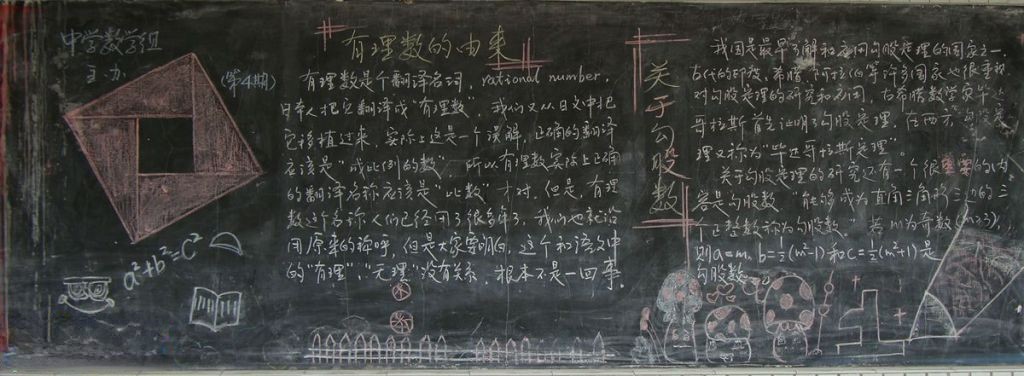 中学数学组
主办
(第4期)
a²+b²=C²
有理数的由来
有理数是个翻译名词, rational number,
日本人把它翻译成"有理数", 我们又从日文中把
它移植过来, 实际上这是一个误解, 正确的翻译
应该是"成比例的数", 所以有理数实际上正确
的翻译名称应该是"比数"才对, 但是, 有理
数这个名称人们已经用了很多年了, 我们也就沿
用原来的称呼, 但是大家要明白, 这个和语文中
的"有理", "无理"没有关系, 根本不是一回事.
关于勾股数
我国是最早了解和应用勾股定理的国家之一,
古代的印度、希腊、阿拉伯等许多国家也很重视
对勾股定理的研究和应用, 古希腊数学家毕达
哥拉斯首先证明了勾股定理, 在西方, 勾股定
理又称为"毕达哥拉斯定理".
关于勾股定理的研究还有一个很重要的内
容是勾股数, 能够成为直角三角形三边的三
个正整数称为勾股数, 若m为奇数(m≥3),
则a=m, b=½(m²-1)和c=½(m²+1)是
勾股数.